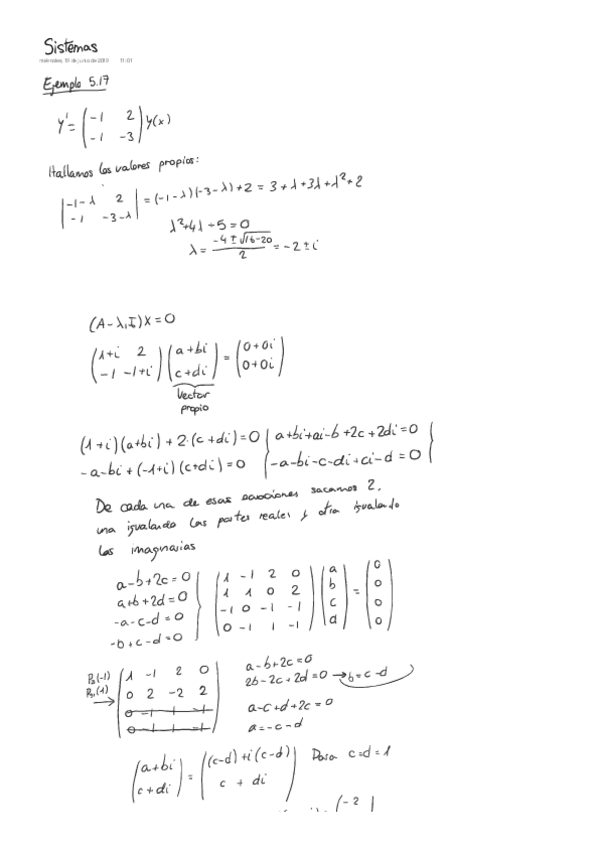 Sistemas
miércoles, 19 de junio de 2019 11:01
Ejemplo 5.17
y' = (-1 2; -1 -3) y(x)
Hallamos los valores propios:
|-1-λ 2; -1 -3-λ| = (-1-λ)(-3-λ)+2 = 3+λ+3λ+λ²+2
λ²+4λ+5=0
λ = (-4±√16-20)/2 = -2±i
(A-λ₁I)X=0
(1+i 2; -1 -1+i) (a+bi; c+di) = (0+0i; 0+0i)
Vector
propio
(1+i)(a+bi)+2·(c+di)=0 { a+bi+ai-b+2c+2di=0
-a-bi+(-1+i)(c+di)=0 { -a-bi-c-di+ci-d=0
De cada una de esas ecuaciones sacamos 2,
una igualando las partes reales y otra igualando
las imaginarias
a-b+2c=0 (1 -1 2 0) (a) (0)
a+b+2d=0 (1 1 0 2) (b) = (0)
-a-c-d=0 (-1 0 -1 -1) (c) (0)
-b+c-d=0 (0 -1 1 -1) (d) (0)
(1 -1 2 0) a-b+2c=0
(0 2 -2 2) 2b-2c+2d=0 → b=c-d
0 -1 1 -1 a-c+d+2c=0
0 -1 1 -1 a=-c-d
(a+bi; c+di) = ((c-d)+i(c-d); c + di) Para c=d=1
(-2